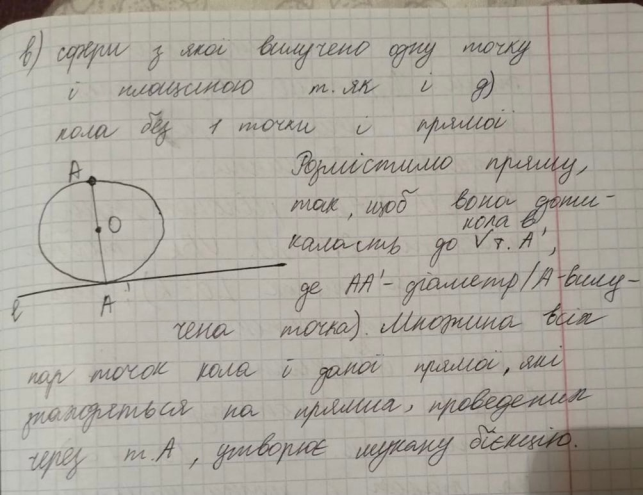 в) сфери з якої вилучено одну точку
і площиною т. як і д)
кола без 1 точки і прямої
A
O
A'
ℓ
Розмістимо пряму,
так, щоб вона доти-
кола в
калась до √ т. A',
де AA' - діаметр (A - вилу-
чена точка). Множина всіх
пар точок кола і даної прямої, які
знаходяться на прямих, проведених
через т. A, утворює шукану бієкцію.